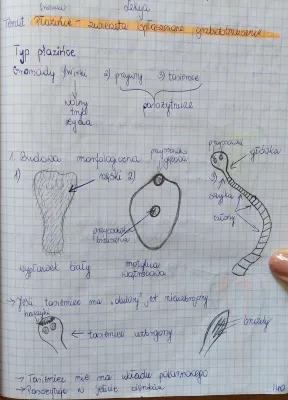 Lekcja
Temat: Płazińce - zwierzęta spłaszczone grzbietobrzusznie
Typ płazińce
Gromady: 1) wirki 2) przywry 3) tasiemce
wolny
tryb
życia
pasożytnicze
1. Budowa morfologiczna
przyssawka
gębowa
przyssawki
główka
1)
rzęski 2)
3)
szyjka
człony
przyssawka
brzuszna
wypławek biały
motylica
wątrobowa
→ Jeśli tasiemiec ma
haczyki
→ tasiemiec uzbrojony
bruzdy
→ Tasiemiec nie ma układu pokarmowego
→ Pasożytuje w jelicie